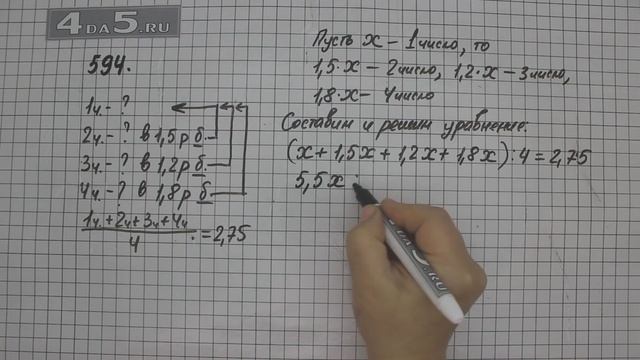 4DA5.RU
594.
1ч. - ?
2ч. - ? в 1,5 р б.
3ч. - ? в 1,2 р б.
4ч. - ? в 1,8 р б.
1ч. + 2ч + 3ч + 4ч
4
: = 2,75
Пусть x - 1 число, то
1,5·x - 2 число, 1,2·x - 3 число,
1,8·x - 4 число
Составим и решим уравнение:
(x + 1,5x + 1,2x + 1,8x) : 4 = 2,75
5,5x :